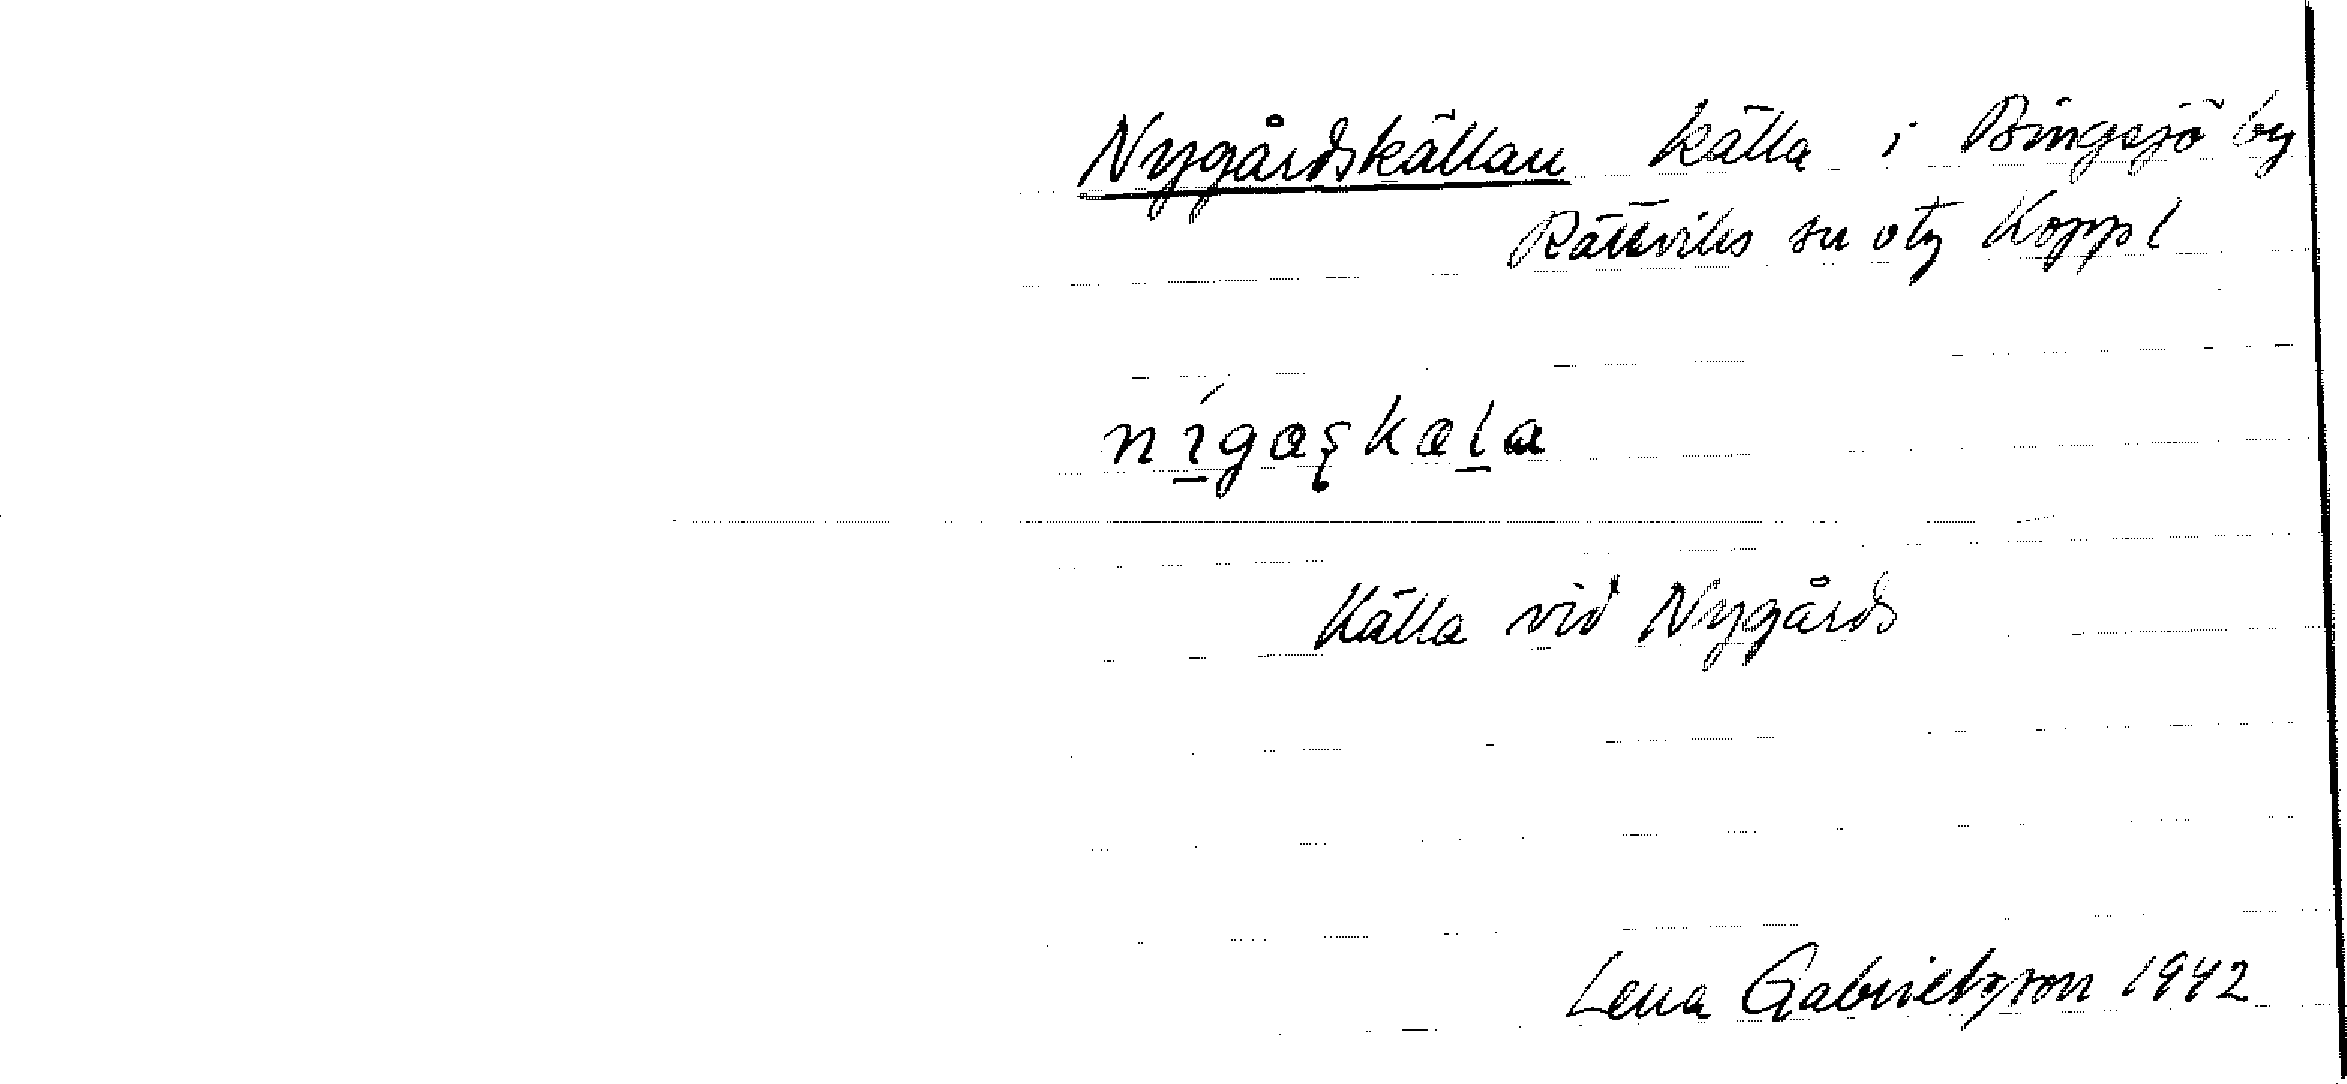 Nygårdskällan källa i Bingsjö by
Rättviks sn oty Koppl
Källa vid Nygårds
Lena Gabrielsson 1942